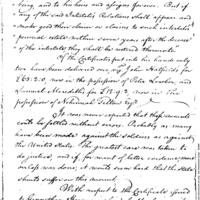 being, and to his heirs and assigns forever. But if
any of the said Intestates Relations shall appear and
make good their claim or claims to such intestates
personal estate within seven years after the decease
of the intestate, they shall be entitled thereto"
Of the Certificates put into his hands only
two have been delivered one, John
£63.2.0 now in the possession of Peter
Samuel Meredith for £18.9.2 now in the
possession of Nehemiah Tilton Esqr
It was never expected that these accounts
could be settled without errors. Probably as many
have been made against the soldiers as against
the United States. The greatest care was taken
to do justice, and if, for want of better evidence, much
or less was done, it seems now hard that the State
should suffer on the account.
With respect to the Certificates issued